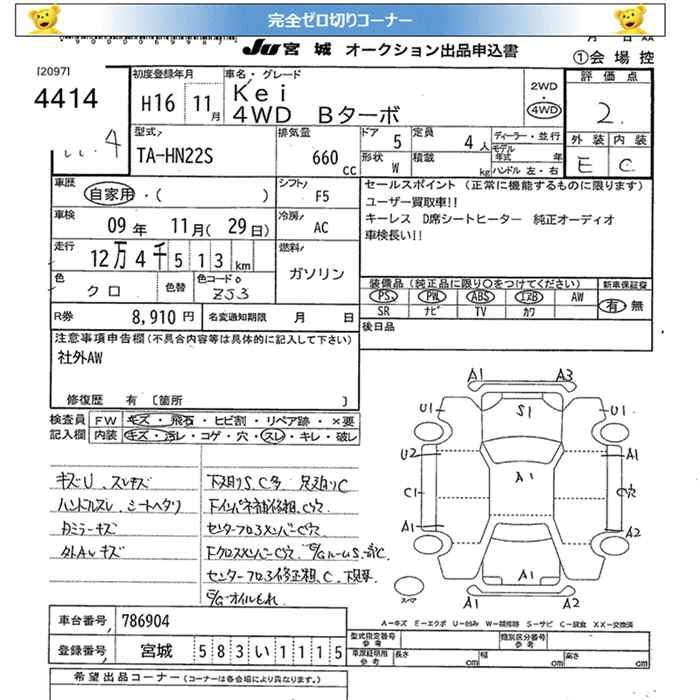 完全ゼロ切りコーナー
JU 宮城 オークション出品申込書
月 日 AA
①会場控
[2097]
4414
初度登録年月
H16 11月
車名・グレード
Kei
4WD Bターボ
2WD
・
4WD
評価点
2.
外装 内装
E C
型式
TA-HN22S
排気量
660 cc
ドア 5
形状 W
定員 4人
積載 kg
ディーラー・並行
モデル年式 年
ハンドル 左・右
車歴
自家用・( )
シフト F5
車検
09年 11月(29日)
冷房 AC
走行
12万4千513km
燃料
ガソリン
色
クロ
色替
色コードNo
ZJ3
R券 8,910円
名変通知期限 月 日
セールスポイント (正常に機能するものに限ります)
ユーザー買取車!!
キーレス D席シートヒーター 純正オーディオ
車検長い!!
装備品(純正品に限り○をつけてください)
PS PW ABS エアB AW
SR ナビ TV カワ
新車保証書
有・無
後日品
注意事項申告欄(不具合内容等は具体的に記入して下さい)
社外AW
修復歴 有〔箇所 〕
検査員記入欄
FW キズ・飛石・ヒビ割・リペア跡・×要
内装 キズ・汚レ・コゲ・穴・スレ・キレ・破レ
キズU、スレキズ
ハンドルスレ、シートヘタリ
Rミラーキズ
外AWキズ
下廻りS、C多 足廻りC
下インパネ補修粗、C穴
センターフロアメンバーC穴
FクロスメンバーC穴
センターフロア修正粗、C、
E/Gオイルもれ
A1 A3
U1 S1 U1
U2 A1 A1
C1 C穴
A1 A2
A1 A2
スペア
A—キズ E—エクボ U—凹み W—補修跡 S—サビ C—腐食 XX—交換済
車台番号 786904
登録番号 宮城 583い1115
型式指定番号 参考
類別区分番号 参考
車庫証明用 参考 長さ cm 幅 cm 高さ cm
希望出品コーナー (コーナーは各会場により異なります)